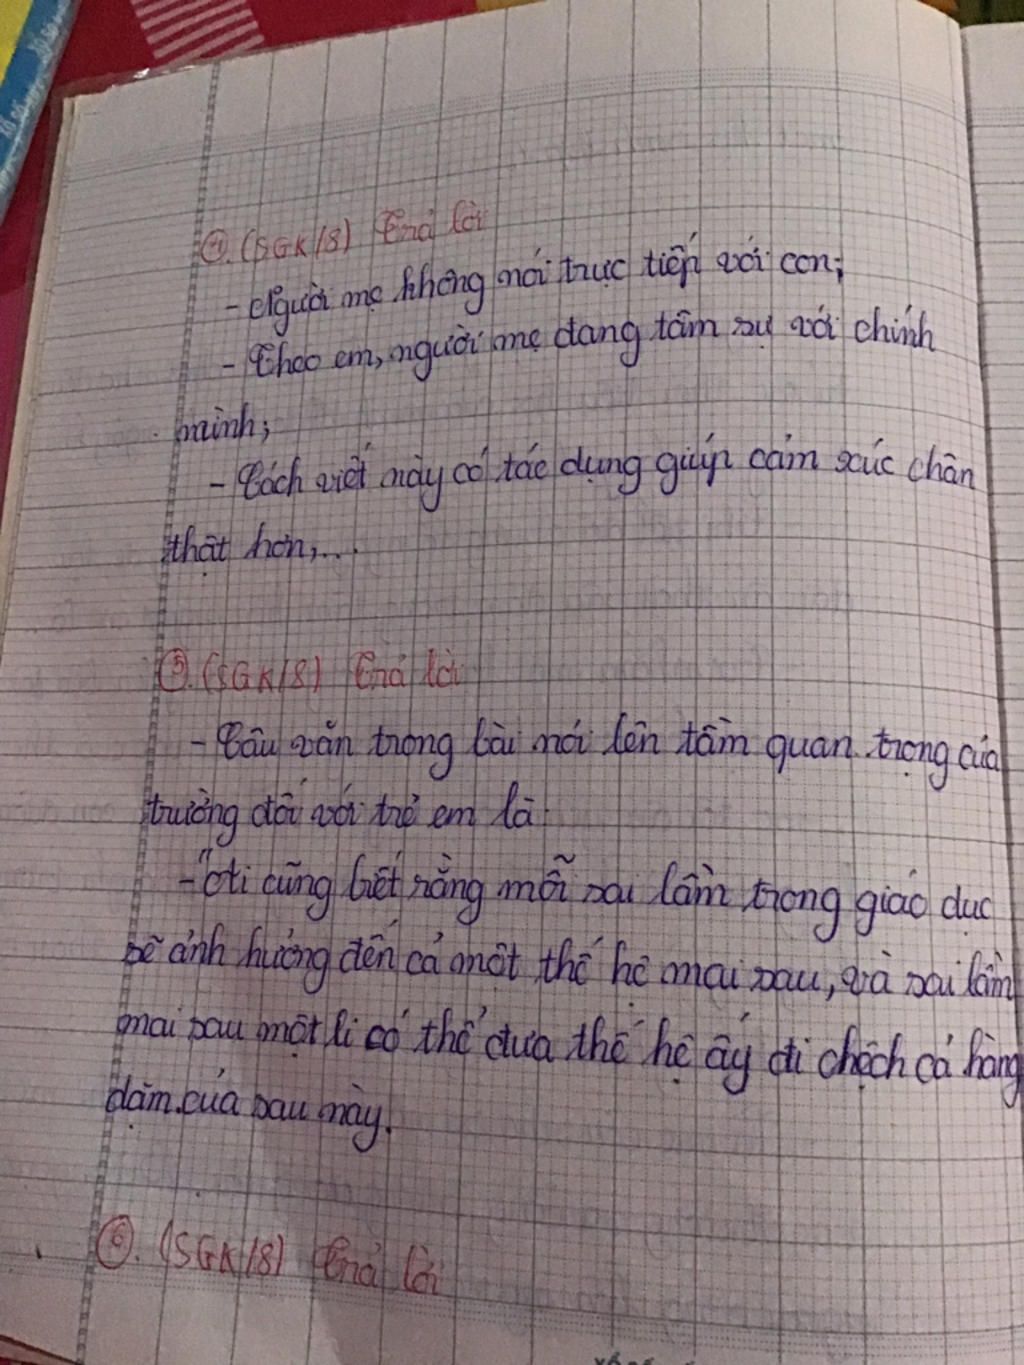 ④. (SGK/8) Trả lời
- Người mẹ không nói trực tiếp với con;
- Theo em, người mẹ đang tâm sự với chính
mình;
- Cách viết này có tác dụng giúp cảm xúc chân
thật hơn,...
⑤. (SGK/8) Trả lời
- Câu văn trong bài nói lên tầm quan trọng của
trường đối với trẻ em là:
-"Ai cũng biết rằng mỗi sai lầm trong giáo dục
sẽ ảnh hưởng đến cả một thế hệ mai sau, và sai lầm
mai sau một li có thể đưa thế hệ ấy đi chệch cả hàng
dặm của sau này.
⑥. (SGK/8) Trả lời